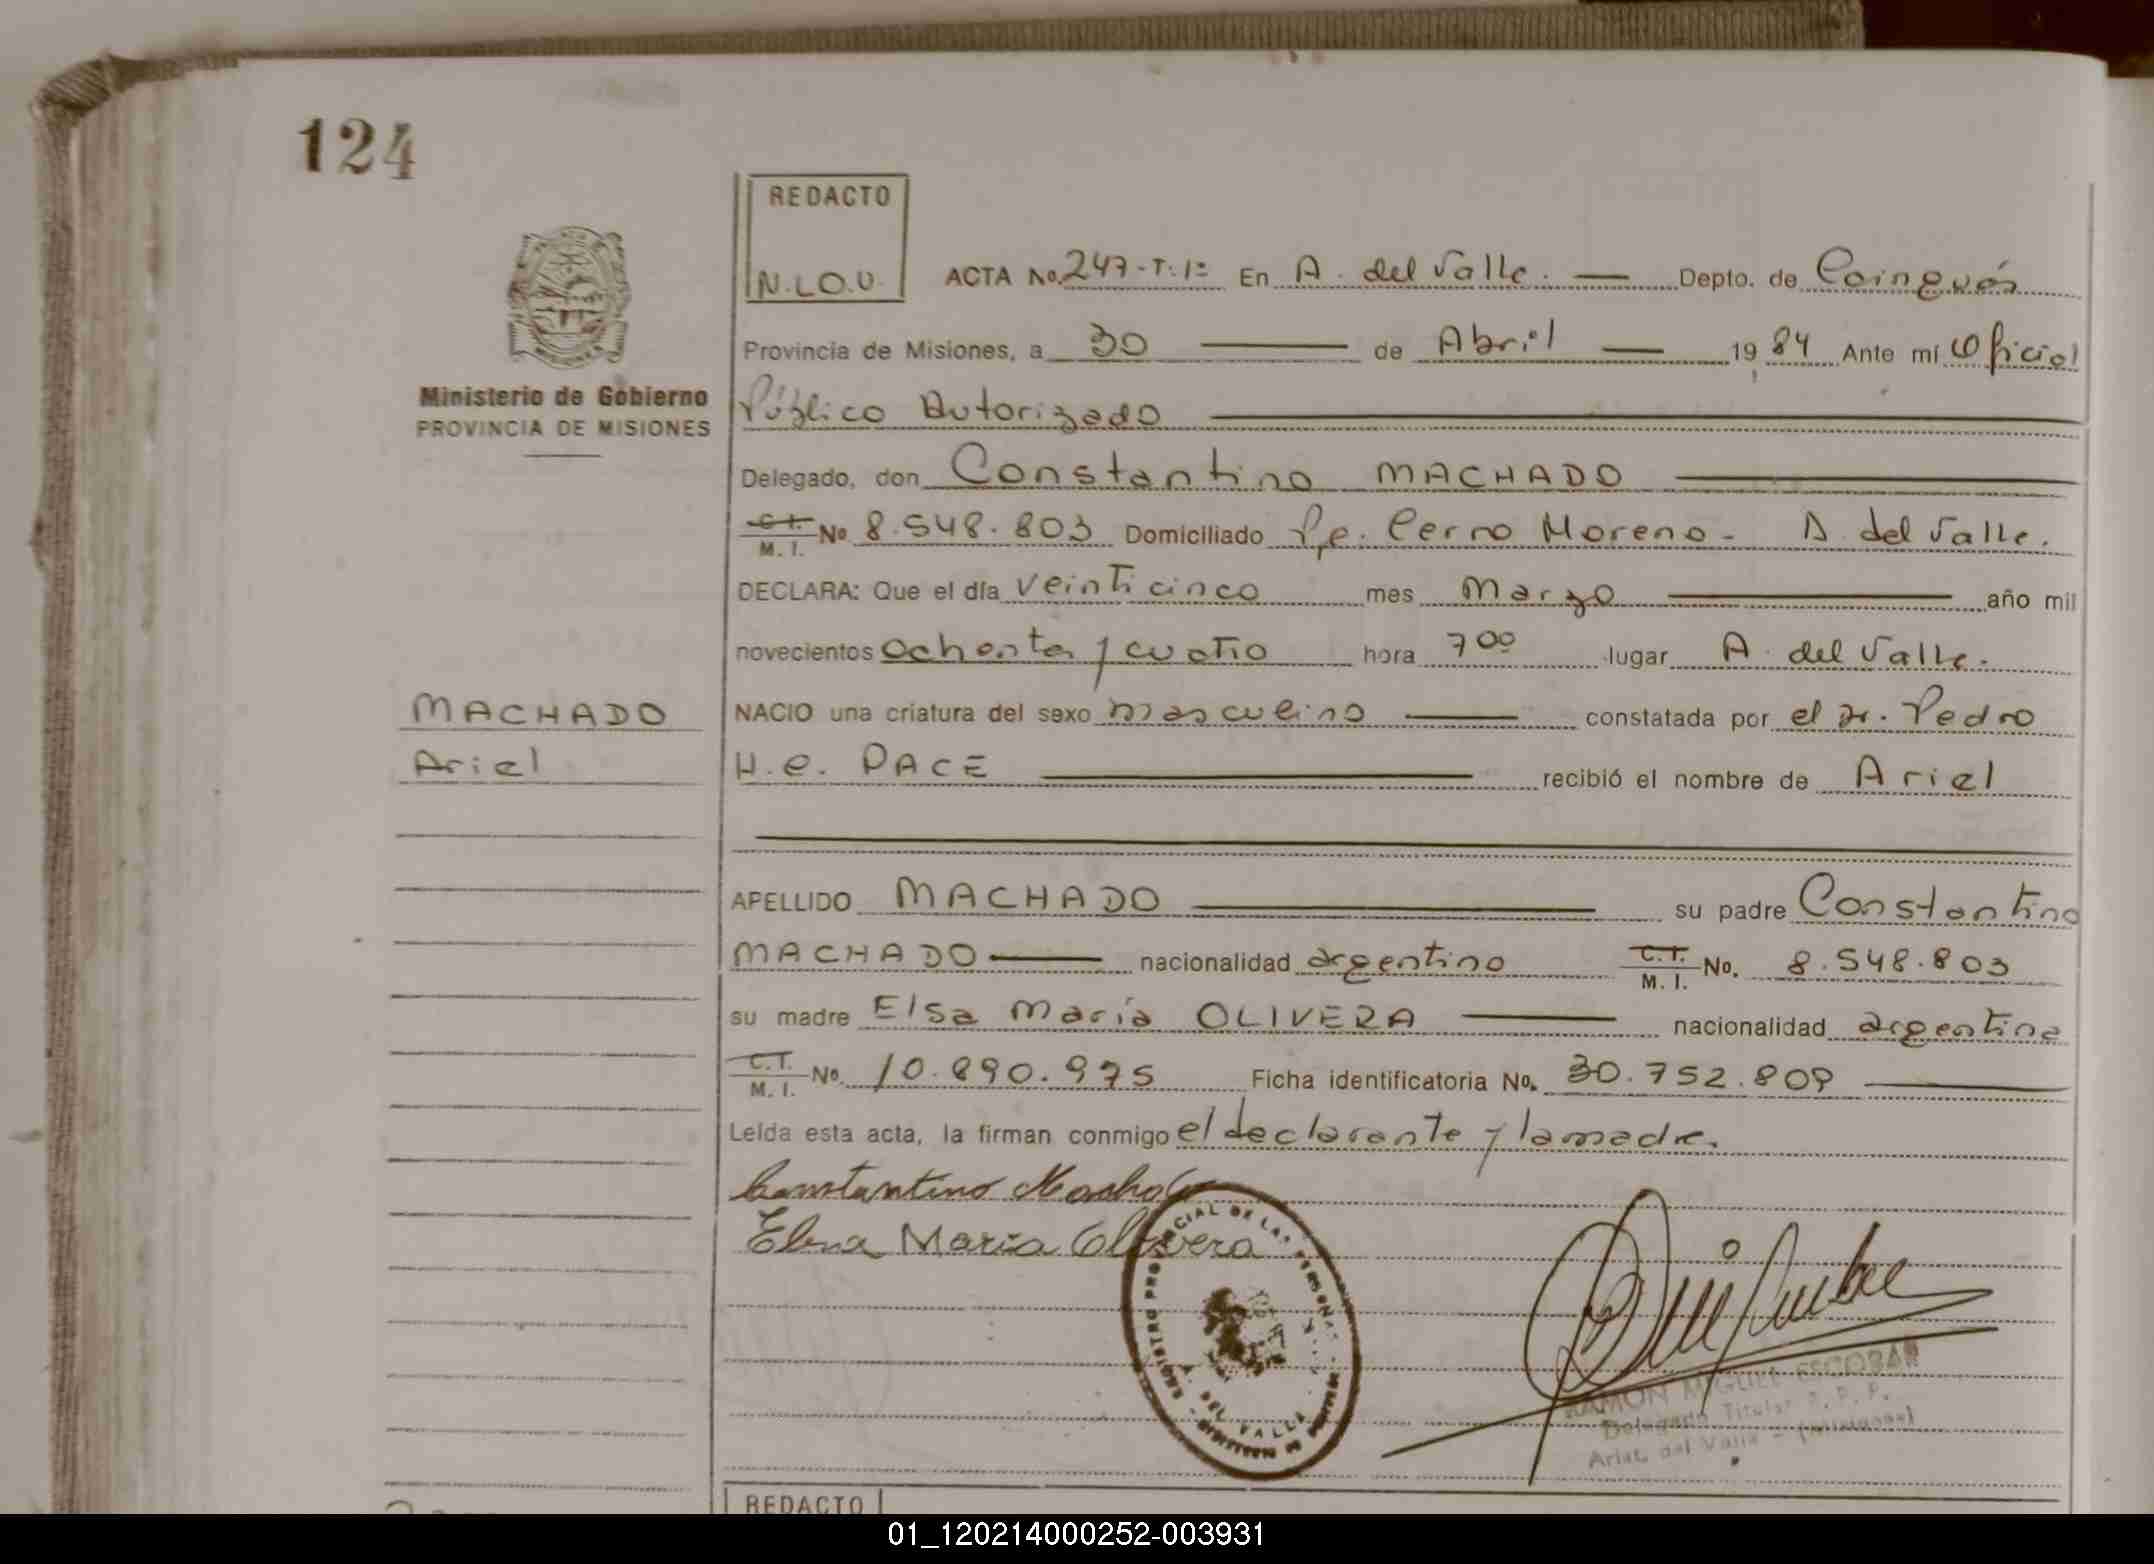 124
REDACTO
N.LO.U.
ACTA No. 247-T.1º En A. del Valle. Depto. de Cainguás
Provincia de Misiones, a 30 de Abril 1984 Ante mí Oficial
Ministerio de Gobierno
PROVINCIA DE MISIONES
Público Autorizado
Delegado, don Constantino MACHADO
C.I. M. I. No 8.548.803 Domiciliado Pje. Cerro Moreno - A. del Valle.
DECLARA: Que el día veinticinco mes Marzo año mil
novecientos ochenta y cuatro hora 7 00 lugar A. del Valle.
MACHADO
Ariel
NACIO una criatura del sexo masculino constatada por el Dr. Pedro
H.C. PACE recibió el nombre de Ariel
APELLIDO MACHADO su padre Constantino
MACHADO nacionalidad argentino C.I. M. I. No. 8.548.803
su madre Elsa María OLIVERA nacionalidad argentina
C.I. M. I. No. 10.890.975 Ficha identificatoria No. 30.752.809
Leída esta acta, la firman conmigo el declarante y la madre.
Constantino Machado
Elena Maria Olivera
REGISTRO PROVINCIAL DE LAS PERSONAS
A. DEL VALLE
RAMON MIGUEL ESCOBAR
Delegado Titular R. P. P.
Arist. del Valle - (Misiones)
REDACTO
01_120214000252-003931